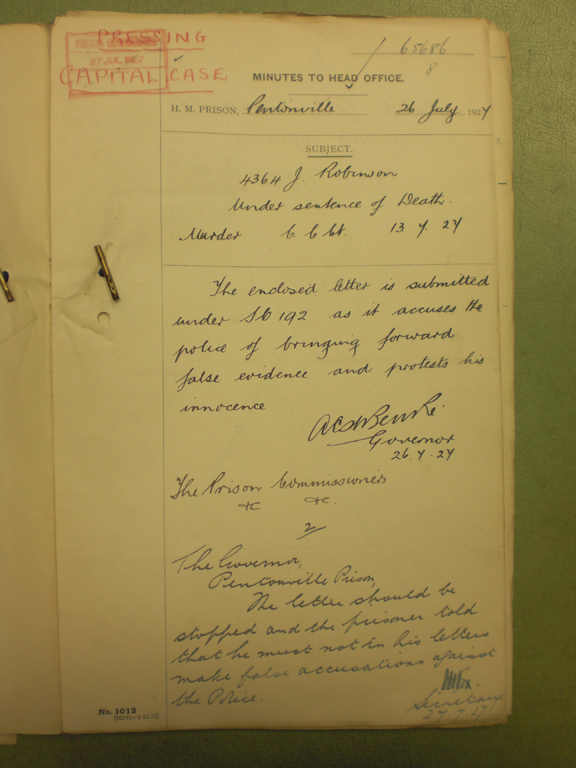 PRESSING
PRISON COMMISSION
27 JUL 1927
CAPITAL CASE
65686
8
MINUTES TO HEAD OFFICE.
H. M. PRISON, Pentonville 26 July 1927
SUBJECT.
4364 J. Robinson
Under sentence of Death.
Murder C.C.Ct. 13 7 27
The enclosed letter is submitted
under S.O 192 as it accuses the
police of bringing forward
false evidence and protests his
innocence
Governor
26.7.27
The Prison Commissioners
&c &c.
2
The Governor,
Pentonville Prison,
The letter should be
stopped and the prisoner told
that he must not in his letters
make false accusations against
the Police.
Secretary
27.7.27
No. 1012